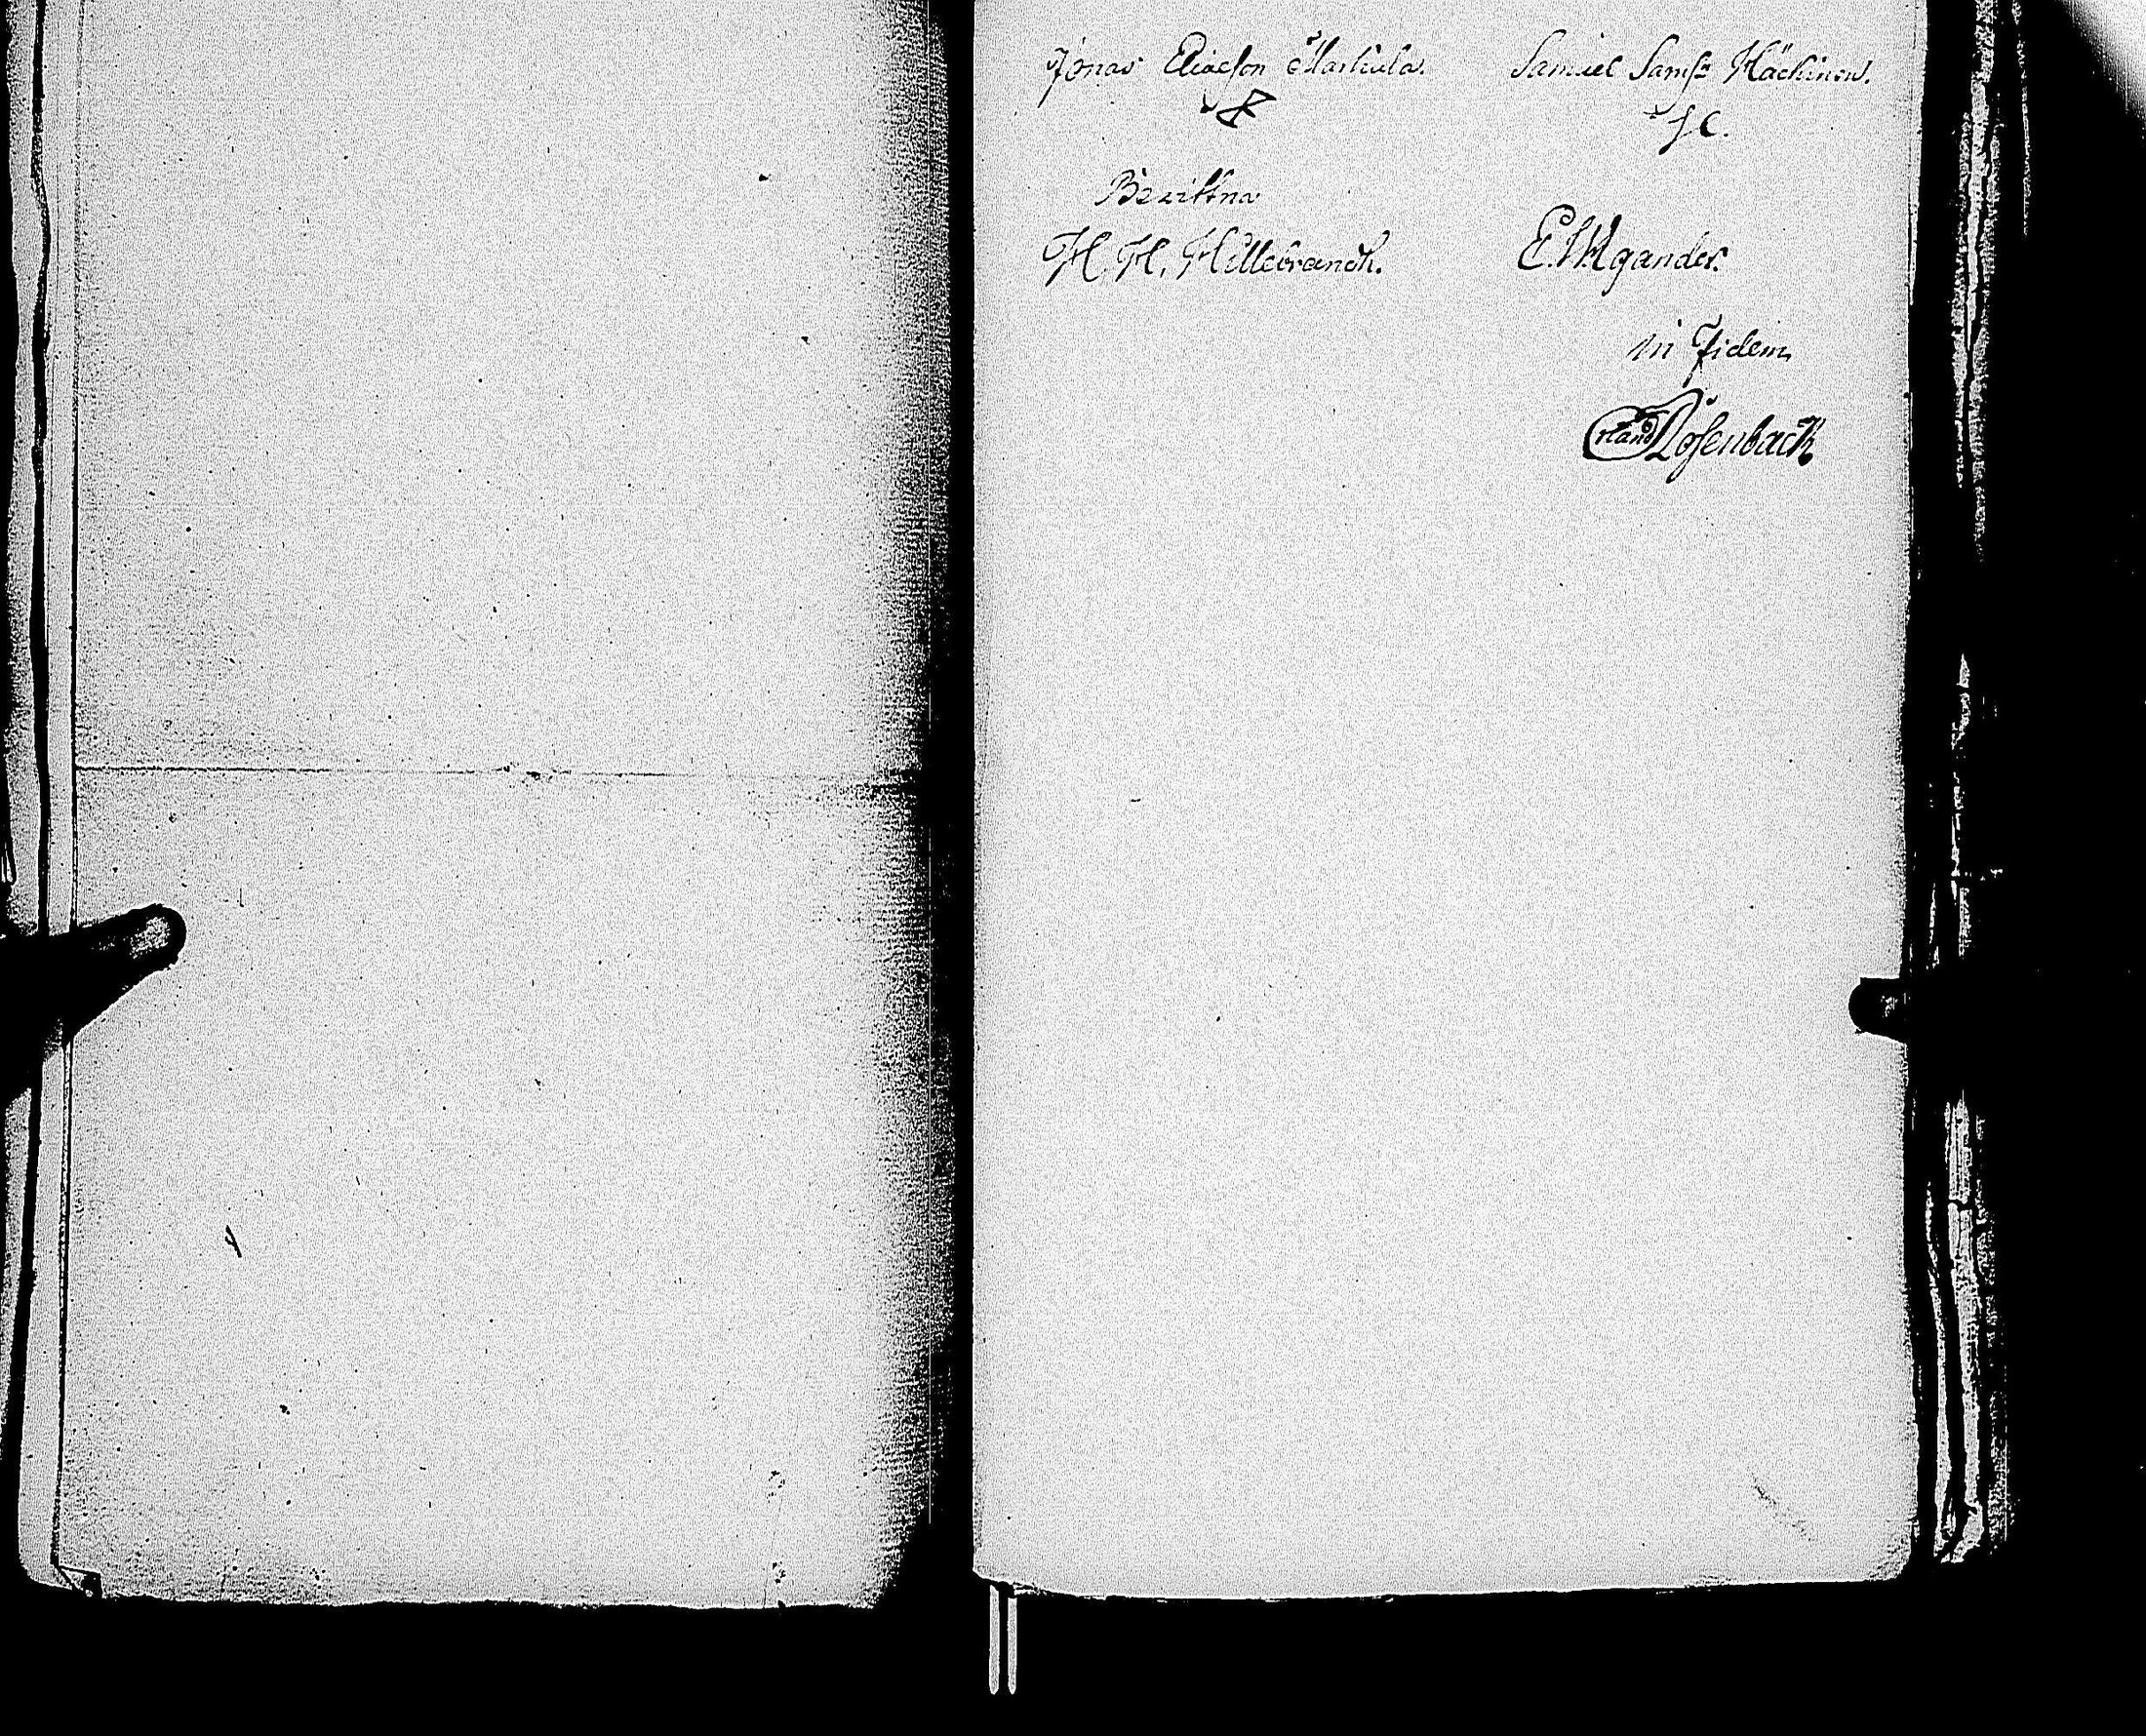 Jonas Eliaeson Markula. Samuel Sams: Häckinen.
S C.
Bewittna
H. H. Hillebrandh. E. Wigander.
in Fidem
Erland Rosenback